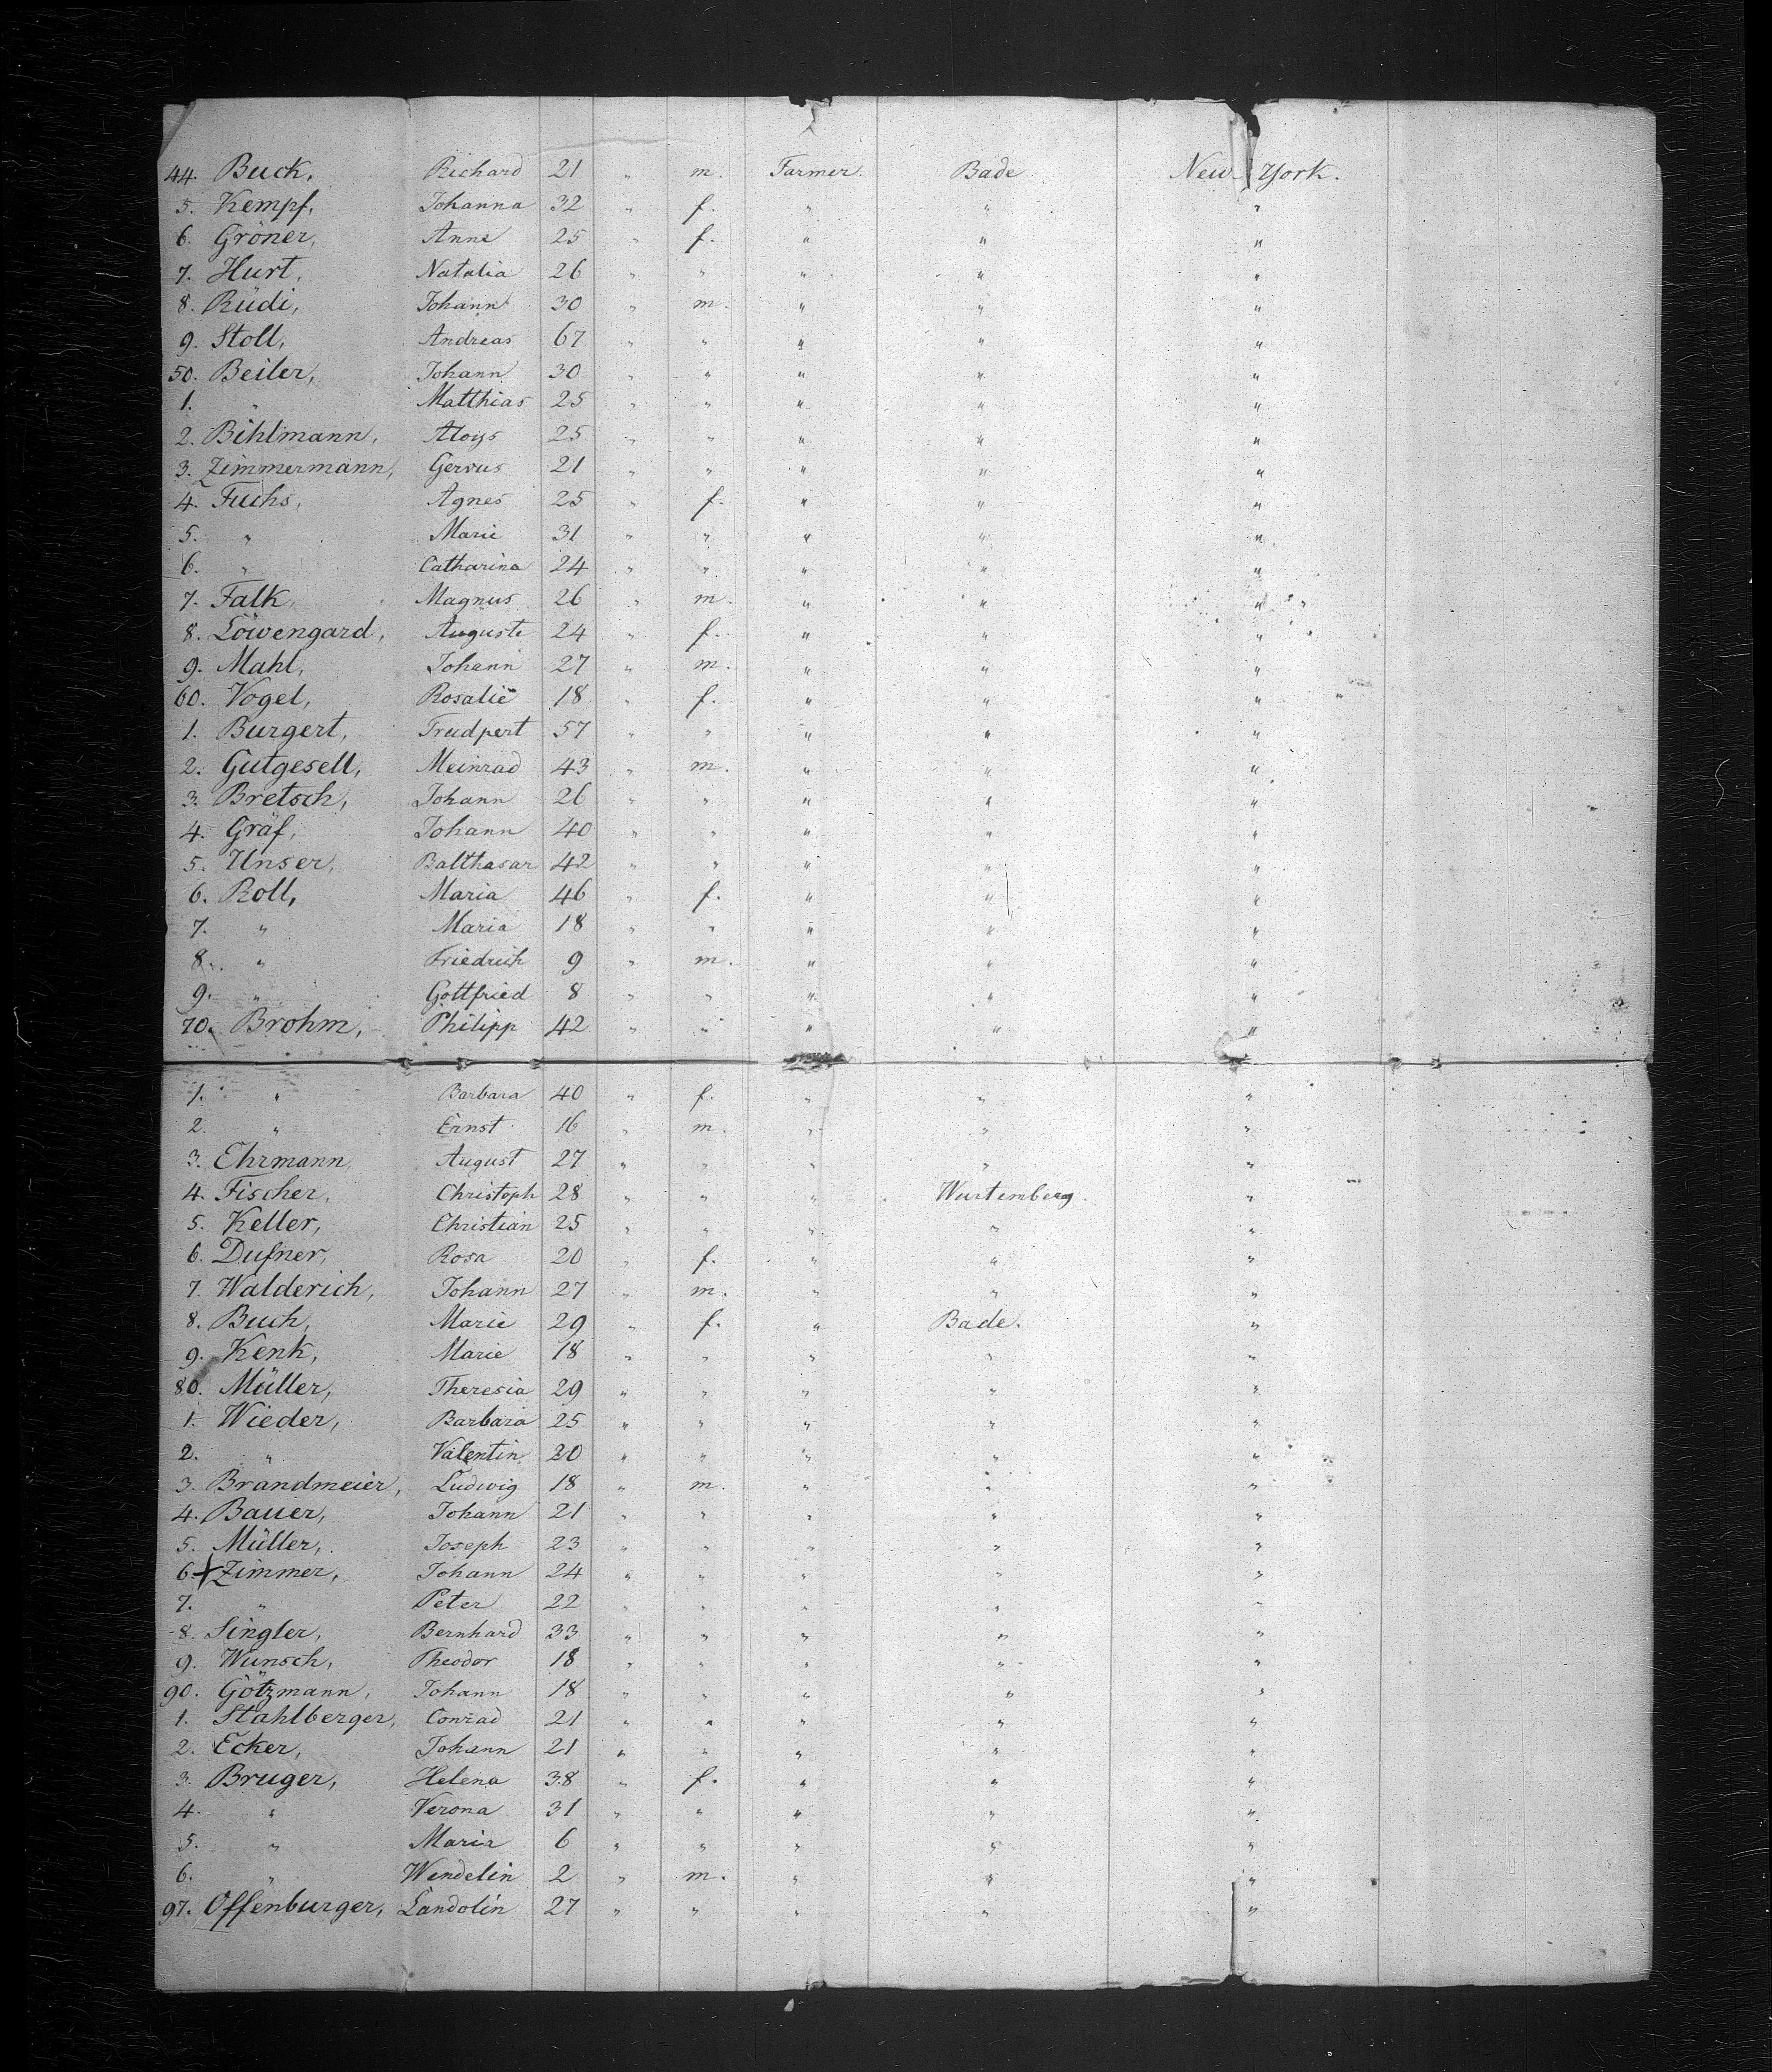 44. Buck, Richard 21 " m. Farmer. Bade New-York.
5. Kempf, Johanna 32 " f. " " "
6. Gröner, Anna 25 " f. " " "
7. Hurt, Natalia 26 " " " " "
8. Rüdi, Johann 30 " m. " " "
9. Stoll, Andreas 67 " " " " "
50. Beiler, Johann 30 " " " " "
1. " Matthias 25 " " " " "
2. Bihlmann, Aloys 25 " " " " "
3. Zimmermann, Gervus 21 " " " " "
4. Fuchs, Agnes 25 " f. " " "
5. " Marie 31 " " " " "
6. " Catharina 24 " " " " "
7. Falk, Magnus 26 " m. " " "
8. Löwengard, Auguste 24 " f. " " "
9. Mahl, Johann 27 " m. " " "
60. Vogel, Rosalie 18 " f. " " "
1. Burgert, Trudpert 57 " " " " "
2. Gutgesell, Meinrad 43 " m. " " "
3. Bretsch, Johann 26 " " " " "
4. Gräf, Johann 40 " " " " "
5. Unser, Balthasar 42 " " " " "
6. Roll, Maria 46 " f. " " "
7. " Maria 18 " " " " "
8. " Friedrich 9 " m. " " "
9. " Gottfried 8 " " " " "
70. Brohm, Philipp 42 " " " " "
1. " Barbara 40 " f. " " "
2. " Ernst 16 " m. " " "
3. Ehrmann, August 27 " " " " "
4. Fischer, Christoph 28 " " " Wurtemberg. "
5. Keller, Christian 25 " " " " "
6. Dufner, Rosa 20 " f. " " "
7. Walderich, Johann 27 " m. " " "
8. Buch, Marie 29 " f. " Bade. "
9. Kenk, Marie 18 " " " " "
80. Müller, Theresia 29 " " " " "
1. Wieder, Barbara 25 " " " " "
2. " Valentin 20 " " " " "
3. Brandmeier, Ludwig 18 " m. " " "
4. Bauer, Johann 21 " " " " "
5. Müller, Joseph 23 " " " " "
6. + Zimmer, Johann 24 " " " " "
7. " Peter 22 " " " " "
8. Singler, Bernhard 33 " " " " "
9. Wunsch, Theodor 18 " " " " "
90. Götzmann, Johann 18 " " " " "
1. Stahlberger, Conrad 21 " " " " "
2. Ecker, Johann 21 " " " " "
3. Bruger, Helena 38 " f. " " "
4. " Verona 31 " " " " "
5. " Maria 6 " " " " "
6. " Wendelin 2 " m. " " "
97. Offenburger, Landolin 27 " " " " "